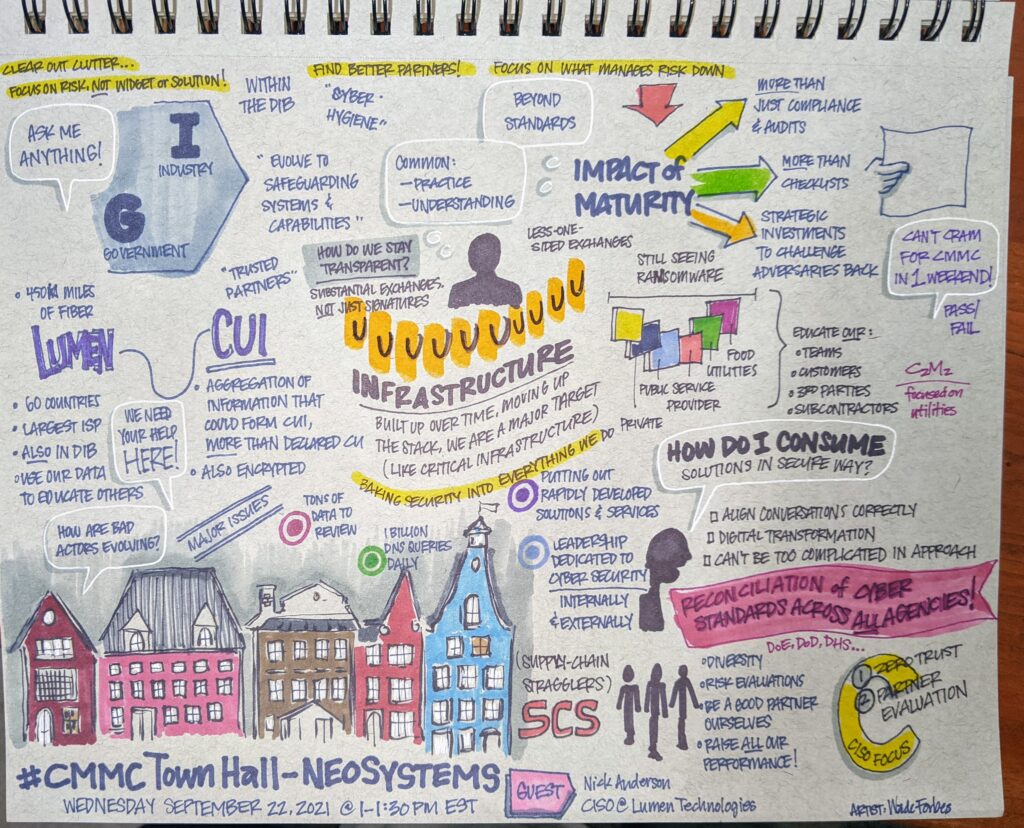 CLEAR OUT CLUTTER...
FOCUS ON RISK, NOT WIDGET or SOLUTION!
WITHIN
THE DIB
FIND BETTER PARTNERS!
"CYBER-
HYGIENE"
FOCUS ON WHAT MANAGES RISK DOWN
BEYOND
STANDARDS
MORE THAN
JUST COMPLIANCE
& AUDITS
ASK ME
ANYTHING!
I
INDUSTRY
G
GOVERNMENT
"EVOLVE TO
SAFEGUARDING
SYSTEMS &
CAPABILITIES"
COMMON:
—PRACTICE
—UNDERSTANDING
IMPACT of
MATURITY
MORE THAN
CHECKLISTS
STRATEGIC
INVESTMENTS
TO CHALLENGE
ADVERSARIES BACK
CAN'T CRAM
FOR CMMC
IN 1 WEEKEND!
PASS/
FAIL
"TRUSTED
PARTNERS"
HOW DO WE STAY
TRANSPARENT?
SUBSTANTIAL EXCHANGES,
NOT JUST SIGNATURES
LESS-ONE-
SIDED EXCHANGES
STILL SEEING
RANSOMWARE
FOOD
UTILITIES
PUBLIC SERVICE
PROVIDER
PRIVATE
EDUCATE OUR:
• TEAMS
• CUSTOMERS
• 3RD PARTIES
• SUBCONTRACTORS
C2M2
focused on
utilities
• 450K MILES
OF FIBER
LUMEN
• 60 COUNTRIES
• LARGEST ISP
• ALSO IN DIB
• USE OUR DATA
TO EDUCATE OTHERS
WE NEED
YOUR HELP
HERE!
CUI
• AGGREGATION OF
INFORMATION THAT
COULD FORM CUI,
MORE THAN DECLARED CU
• ALSO ENCRYPTED
INFRASTRUCTURE
BUILT UP OVER TIME, MOVING UP
THE STACK, WE ARE A MAJOR TARGET
(LIKE CRITICAL INFRASTRUCTURE)
BAKING SECURITY INTO EVERYTHING WE DO
HOW DO I CONSUME
SOLUTIONS IN SECURE WAY?
ALIGN CONVERSATIONS CORRECTLY
DIGITAL TRANSFORMATION
CAN'T BE TOO COMPLICATED IN APPROACH
HOW ARE BAD
ACTORS EVOLVING?
MAJOR ISSUES
TONS OF
DATA TO
REVIEW
1 BILLION
DNS QUERIES
DAILY
PUTTING OUT
RAPIDLY DEVELOPED
SOLUTIONS & SERVICES
LEADERSHIP
DEDICATED TO
CYBER SECURITY
INTERNALLY
& EXTERNALLY
RECONCILIATION of CYBER
STANDARDS ACROSS ALL AGENCIES!
DoE, DoD, DHS...
(SUPPLY-CHAIN
STRAGGLERS)
SCS
• DIVERSITY
• RISK EVALUATIONS
• BE A GOOD PARTNER
OURSELVES
• RAISE ALL OUR
PERFORMANCE!
1 ZERO TRUST
2 PARTNER
EVALUATION
CISO FOCUS
#CMMC Town Hall - NEOSYSTEMS
WEDNESDAY SEPTEMBER 22, 2021 @ 1-1:30 PM EST
GUEST
Nick Anderson
CISO @ Lumen Technologies
ARTIST: Wade Forbes